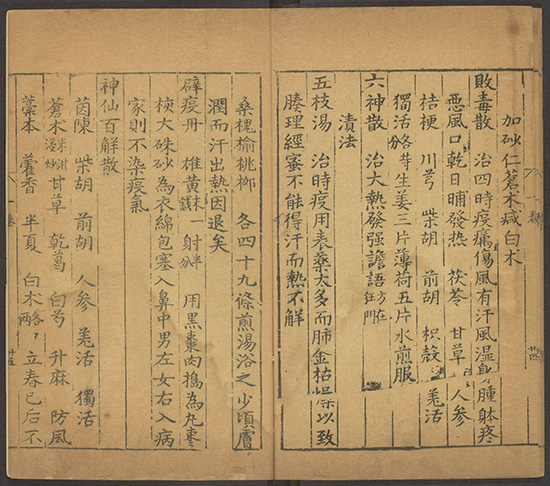 加砂仁蒼术减白术
敗毒散 治四時疫癘傷風有汗風温身腫躰疼
惡風口乾日晡發熱 茯苓 甘草 人参
桔梗 川芎 柴胡 前胡 枳殼 羌活
獨活各 生姜三片薄荷五片水煎服
六神散 治大熱發强譫語方在狂門
漬法
五枝湯 治時疫用表藥太多而肺金枯燥以致
腠理經蜜不能得汗而熱不解
桑槐榆桃柳 各四十九條煎湯浴之少頃膚
潤而汗出熱因退矣
辟疫丹 雄黄一錢 射半分 用黑棗肉搗為丸棗
核大硃砂為衣綿包塞入鼻中男左女右入病
家則不染疫氣
神仙百解散
茵陳 柴胡 前胡 人参 羌活 獨活
蒼术米泔浸炒甘草 乾葛 白芍 升麻 防風
藁本 藿香 半夏 白术各 立春已后不